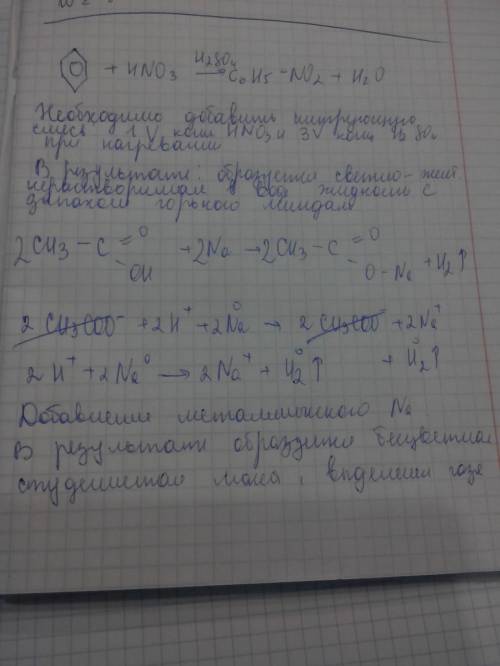 + HNO3 H2SO4 → C6H5-NO2 + H2O
Необходимо добавить нитрующую
смесь 1 V конц HNO3 и 3 V конц H2SO4
при нагревании
В результате: образуется светло-желт.
нерастворимая в воде жидкость с
запахом горького миндаля
2CH3 - C =O OH + 2Na → 2CH3 - C =O O-Na + H2↑
2 CH3COO⁻ + 2H⁺ + 2Na⁰ → 2 CH3COO⁻ + 2Na⁺
+ H2⁰↑
2H⁺ + 2Na⁰ → 2Na⁺ + H2⁰↑
Добавление металлического Na
В результате образуется бесцветная
студенистая масса, выделение газа